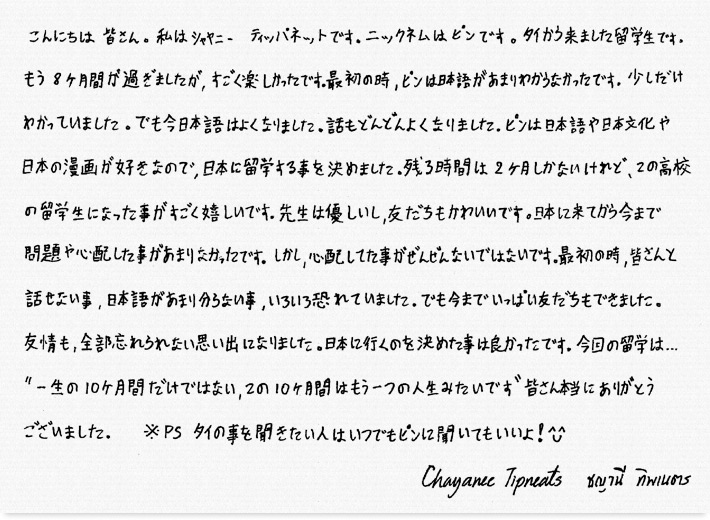 こんにちは 皆さん。私はシャヤニー ティッパネットです。ニックネムはピンです。タイから来ました留学生です。
もう8ヶ月間が過ぎましたが,すごく楽しかったです。最初の時,ピンは日本語があまりわからなかったです. 少しだけ
わかっていました。でも今日本語はよくなりました。話もどんどんよくなりました.ピンは日本語や日本文化や
日本の漫画が好きなので,日本に留学する事を決めました。残る時間は2ヶ月しかないけれど、この高校
の留学生になった事がすごく嬉しいです。先生は優しいし,友だちもかわいいです。日本に来てから今まで
問題や心配した事があまりなかったです。しかし,心配してた事がぜんぜんないではないです。最初の時,皆さんと
話せない事,日本語があまり分らない事,いろいろ恐れていました。でも今までいっぱい友だちもできました。
友情も,全部忘れられない思い出になりました。日本に行くのを決めた事は良かったです。今回の留学は...
"一生の10ヶ月間だけではない,この10ヶ月間はもう一つの人生みたいです"皆さん本当にありがとう
ございました。 ※PS タイの事を聞きたい人はいつでもピンに聞いてもいいよ!^^
Chayanee Tipneats ชญานี ทิพเนตร